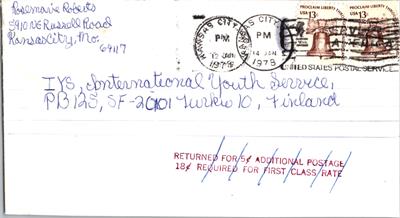 Rosemarie Roberts
5910 NE Russell Road
Kansas City, Mo.
64117
KANSAS CITY
PM
14 JAN
1978
PROCLAIM LIBERTY
USA 13c
UNITED STATES POSTAL SERVICE
IYS, International Youth Service,
PB 125, SF-20101 Turku 10, Finland
RETURNED FOR 5¢ ADDITIONAL POSTAGE
18¢ REQUIRED FOR FIRST CLASS RATE